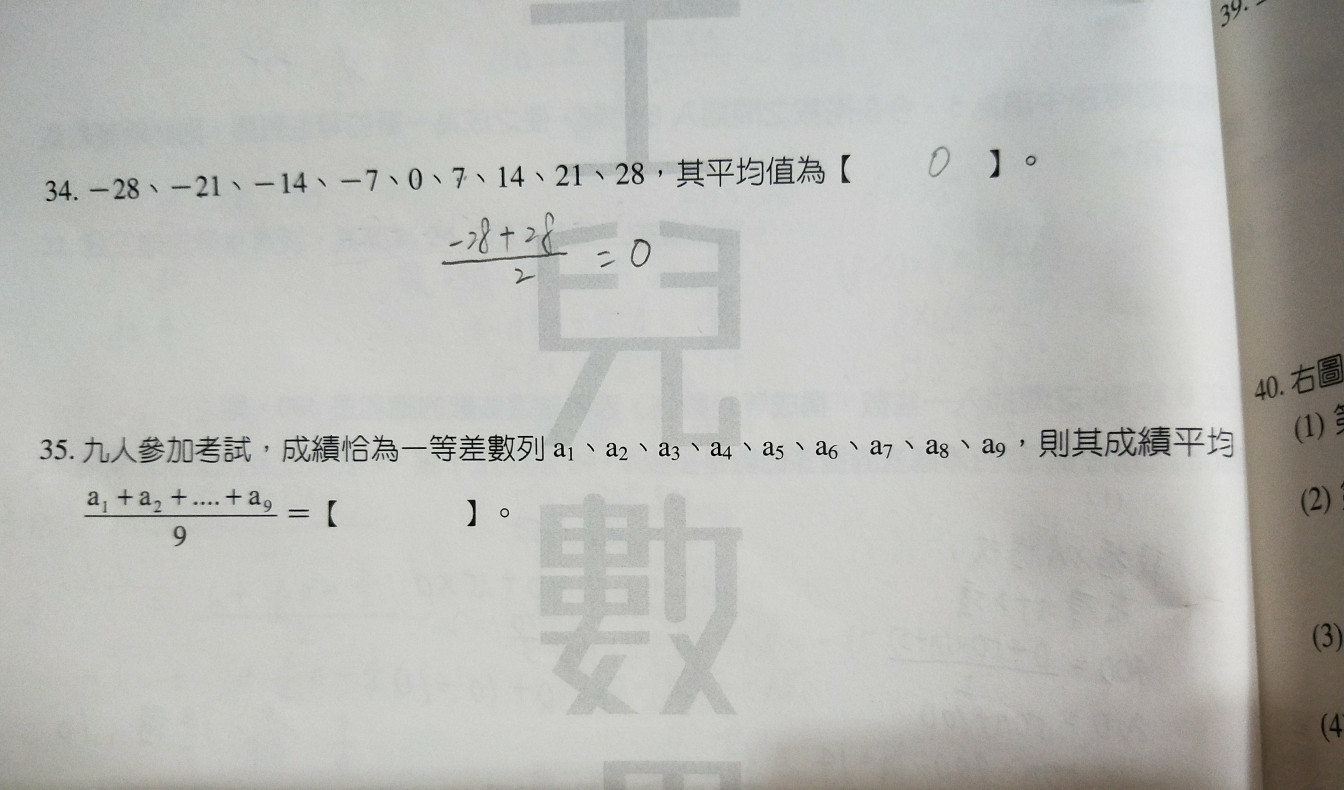 39.
34. －28、－21、－14、－7、0、7、14、21、28，其平均值為【 0 】。
(-28+28)/2 = 0
35. 九人參加考試，成績恰為一等差數列 a₁、a₂、a₃、a₄、a₅、a₆、a₇、a₈、a₉，則其成績平均
(a₁+a₂+....+a₉)/9 =【 】。
兒
數
40. 右圖
(1) 第
(2)
(3)
(4